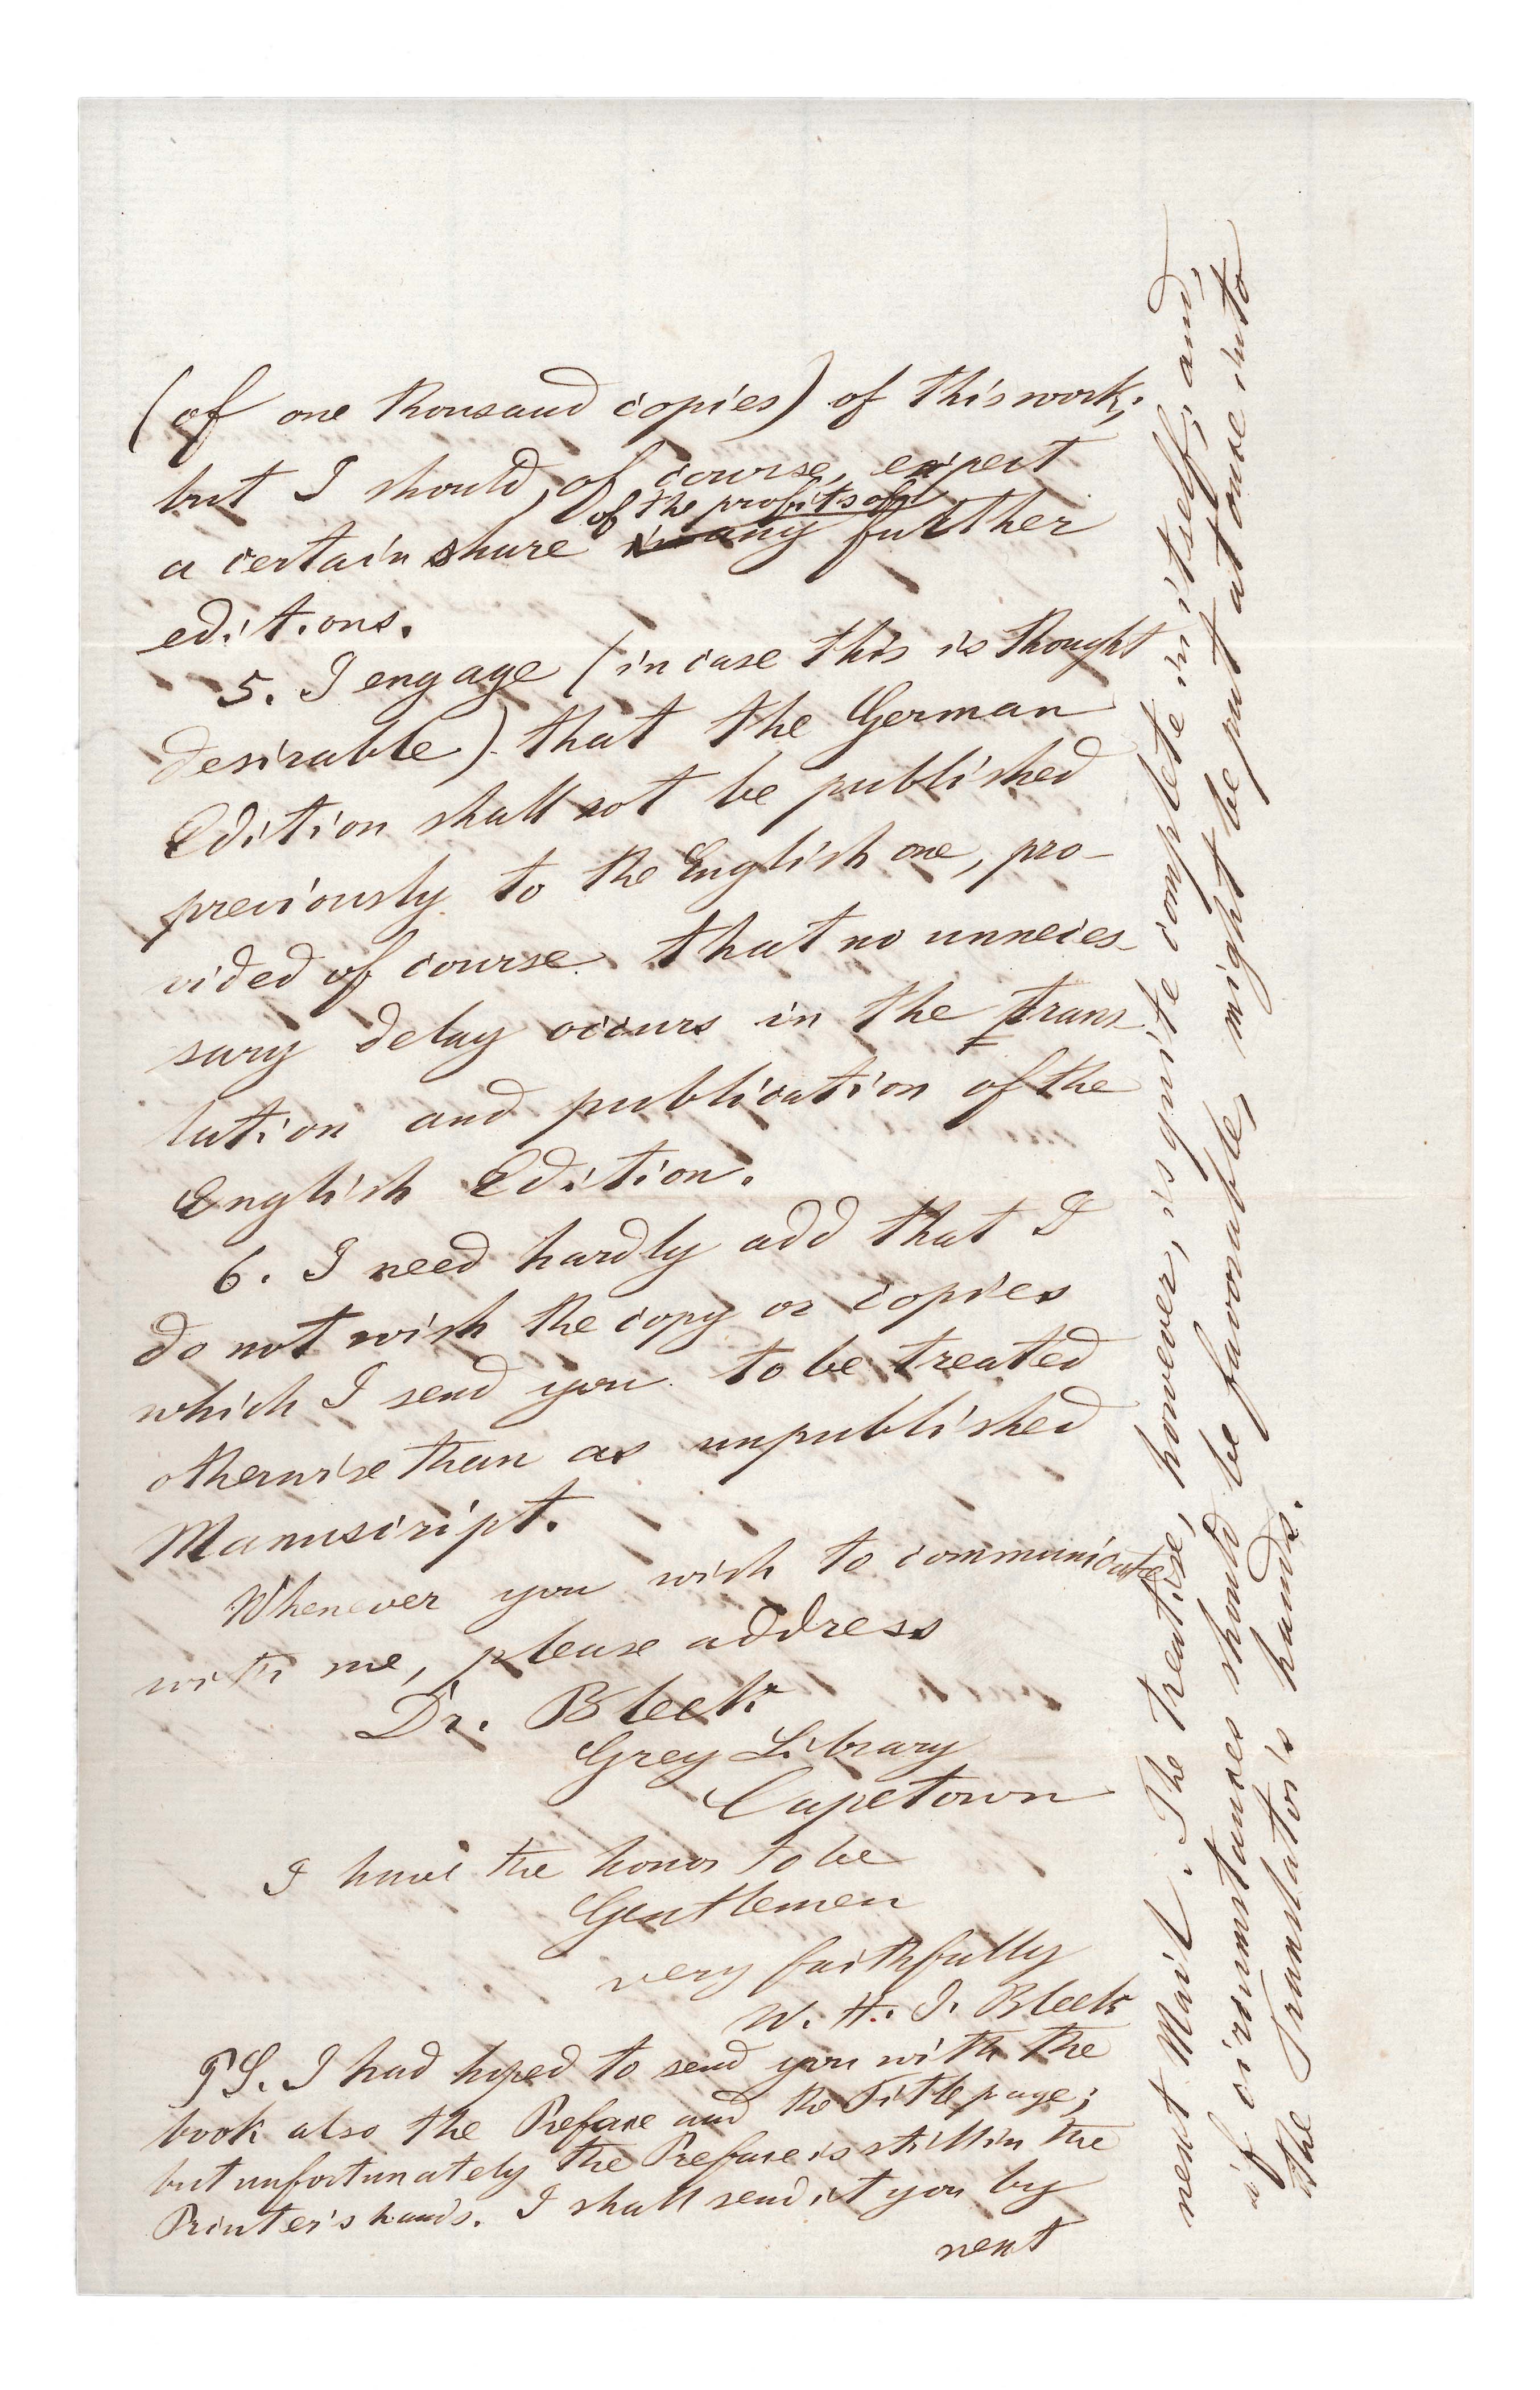 (of one thousand copies) of this work;
but I should, of course, expect
of the profits of
a certain share in any further
editions.
5. I engage (in case this is thought
desirable) that the German
Edition shall not be published
previously to the English one, pro-
vided of course that no unneces-
sary delay occurs in the trans-
lation and publication of the
English Edition.
6. I need hardly add that I
do not wish the copy or copies
which I send you to be treated
otherwise than as unpublished
Manuscript.
Whenever you wish to communicate
with me, please address
Dr. Bleek
Grey Library
Capetown
I have the honor to be
Gentlemen
very faithfully
W. H. I. Bleek
PS. I had hoped to send you with the
book also the Preface and the Titlepage;
but unfortunately the Preface is still in the
Printer's hands. I shall send it you by
next
next Mail. The treatise, however, is quite complete in itself, and,
if circumstances should be favourable, might be put at once into
the Translator's hands.